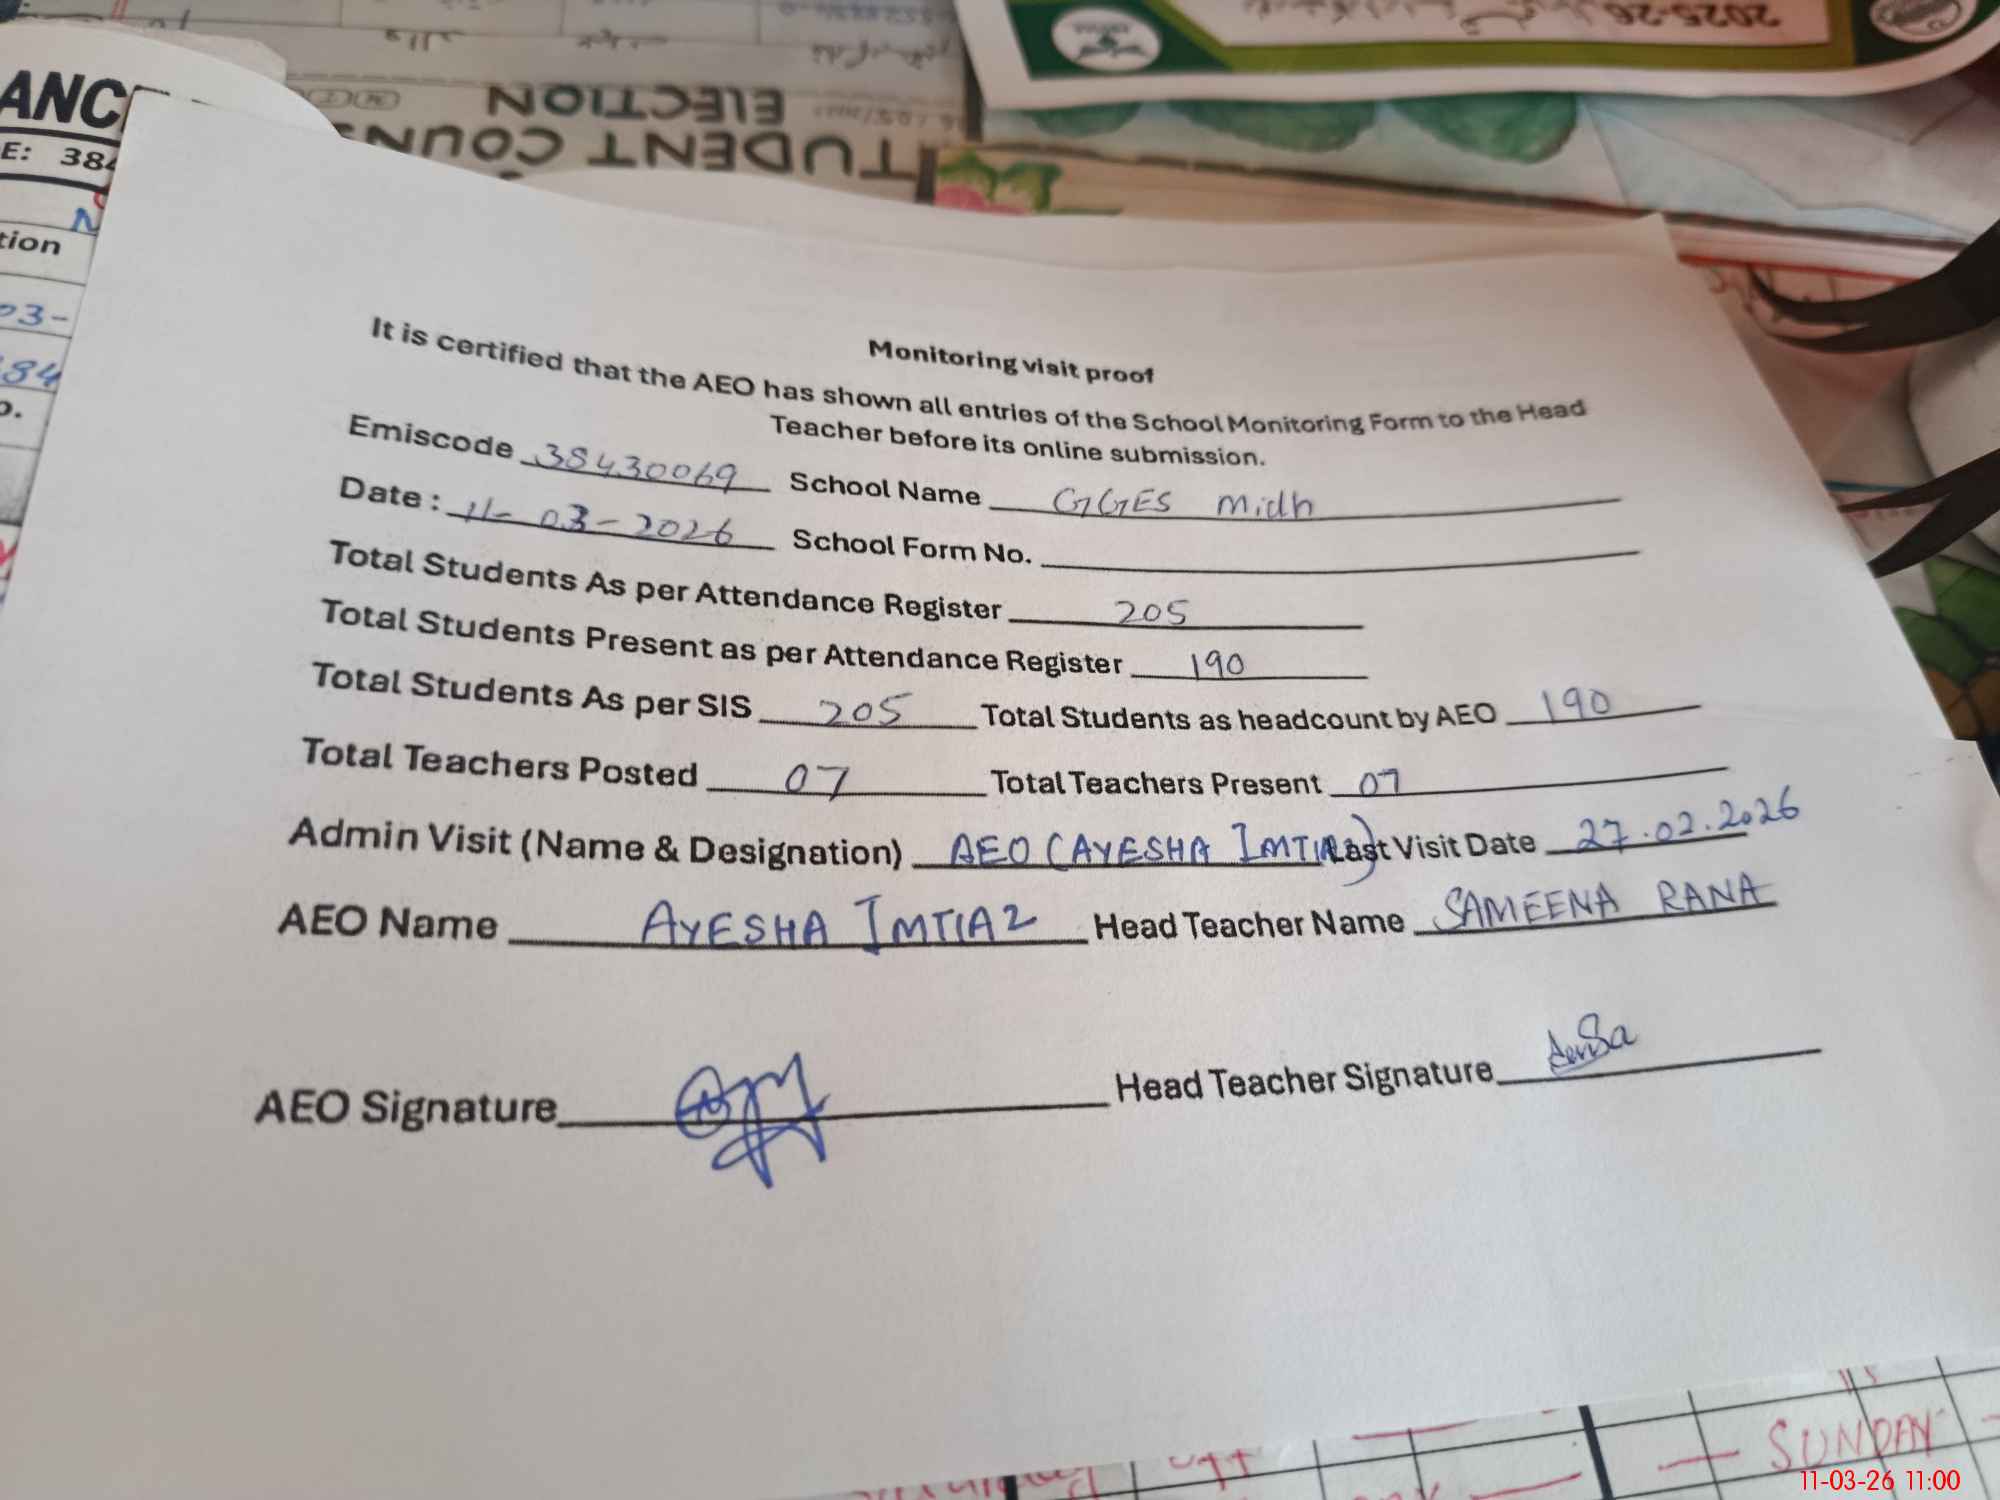 2025-26
ELECTION
TUDENT COUN
ANC
E: 384
tion
03-
84
Monitoring visit proof
It is certified that the AEO has shown all entries of the School Monitoring Form to the Head
Teacher before its online submission.
Emiscode 38430069 School Name GGES Midh
Date : 11-03-2026 School Form No.
Total Students As per Attendance Register 205
Total Students Present as per Attendance Register 190
Total Students As per SIS 205 Total Students as headcount by AEO 190
Total Teachers Posted 07 Total Teachers Present 07
Admin Visit (Name & Designation) AEO (AYESHA IMTIAZ) Last Visit Date 27.02.2026
AEO Name AYESHA IMTIAZ Head Teacher Name SAMEENA RANA
AEO Signature Head Teacher Signature
SUNDAY
11-03-26 11:00